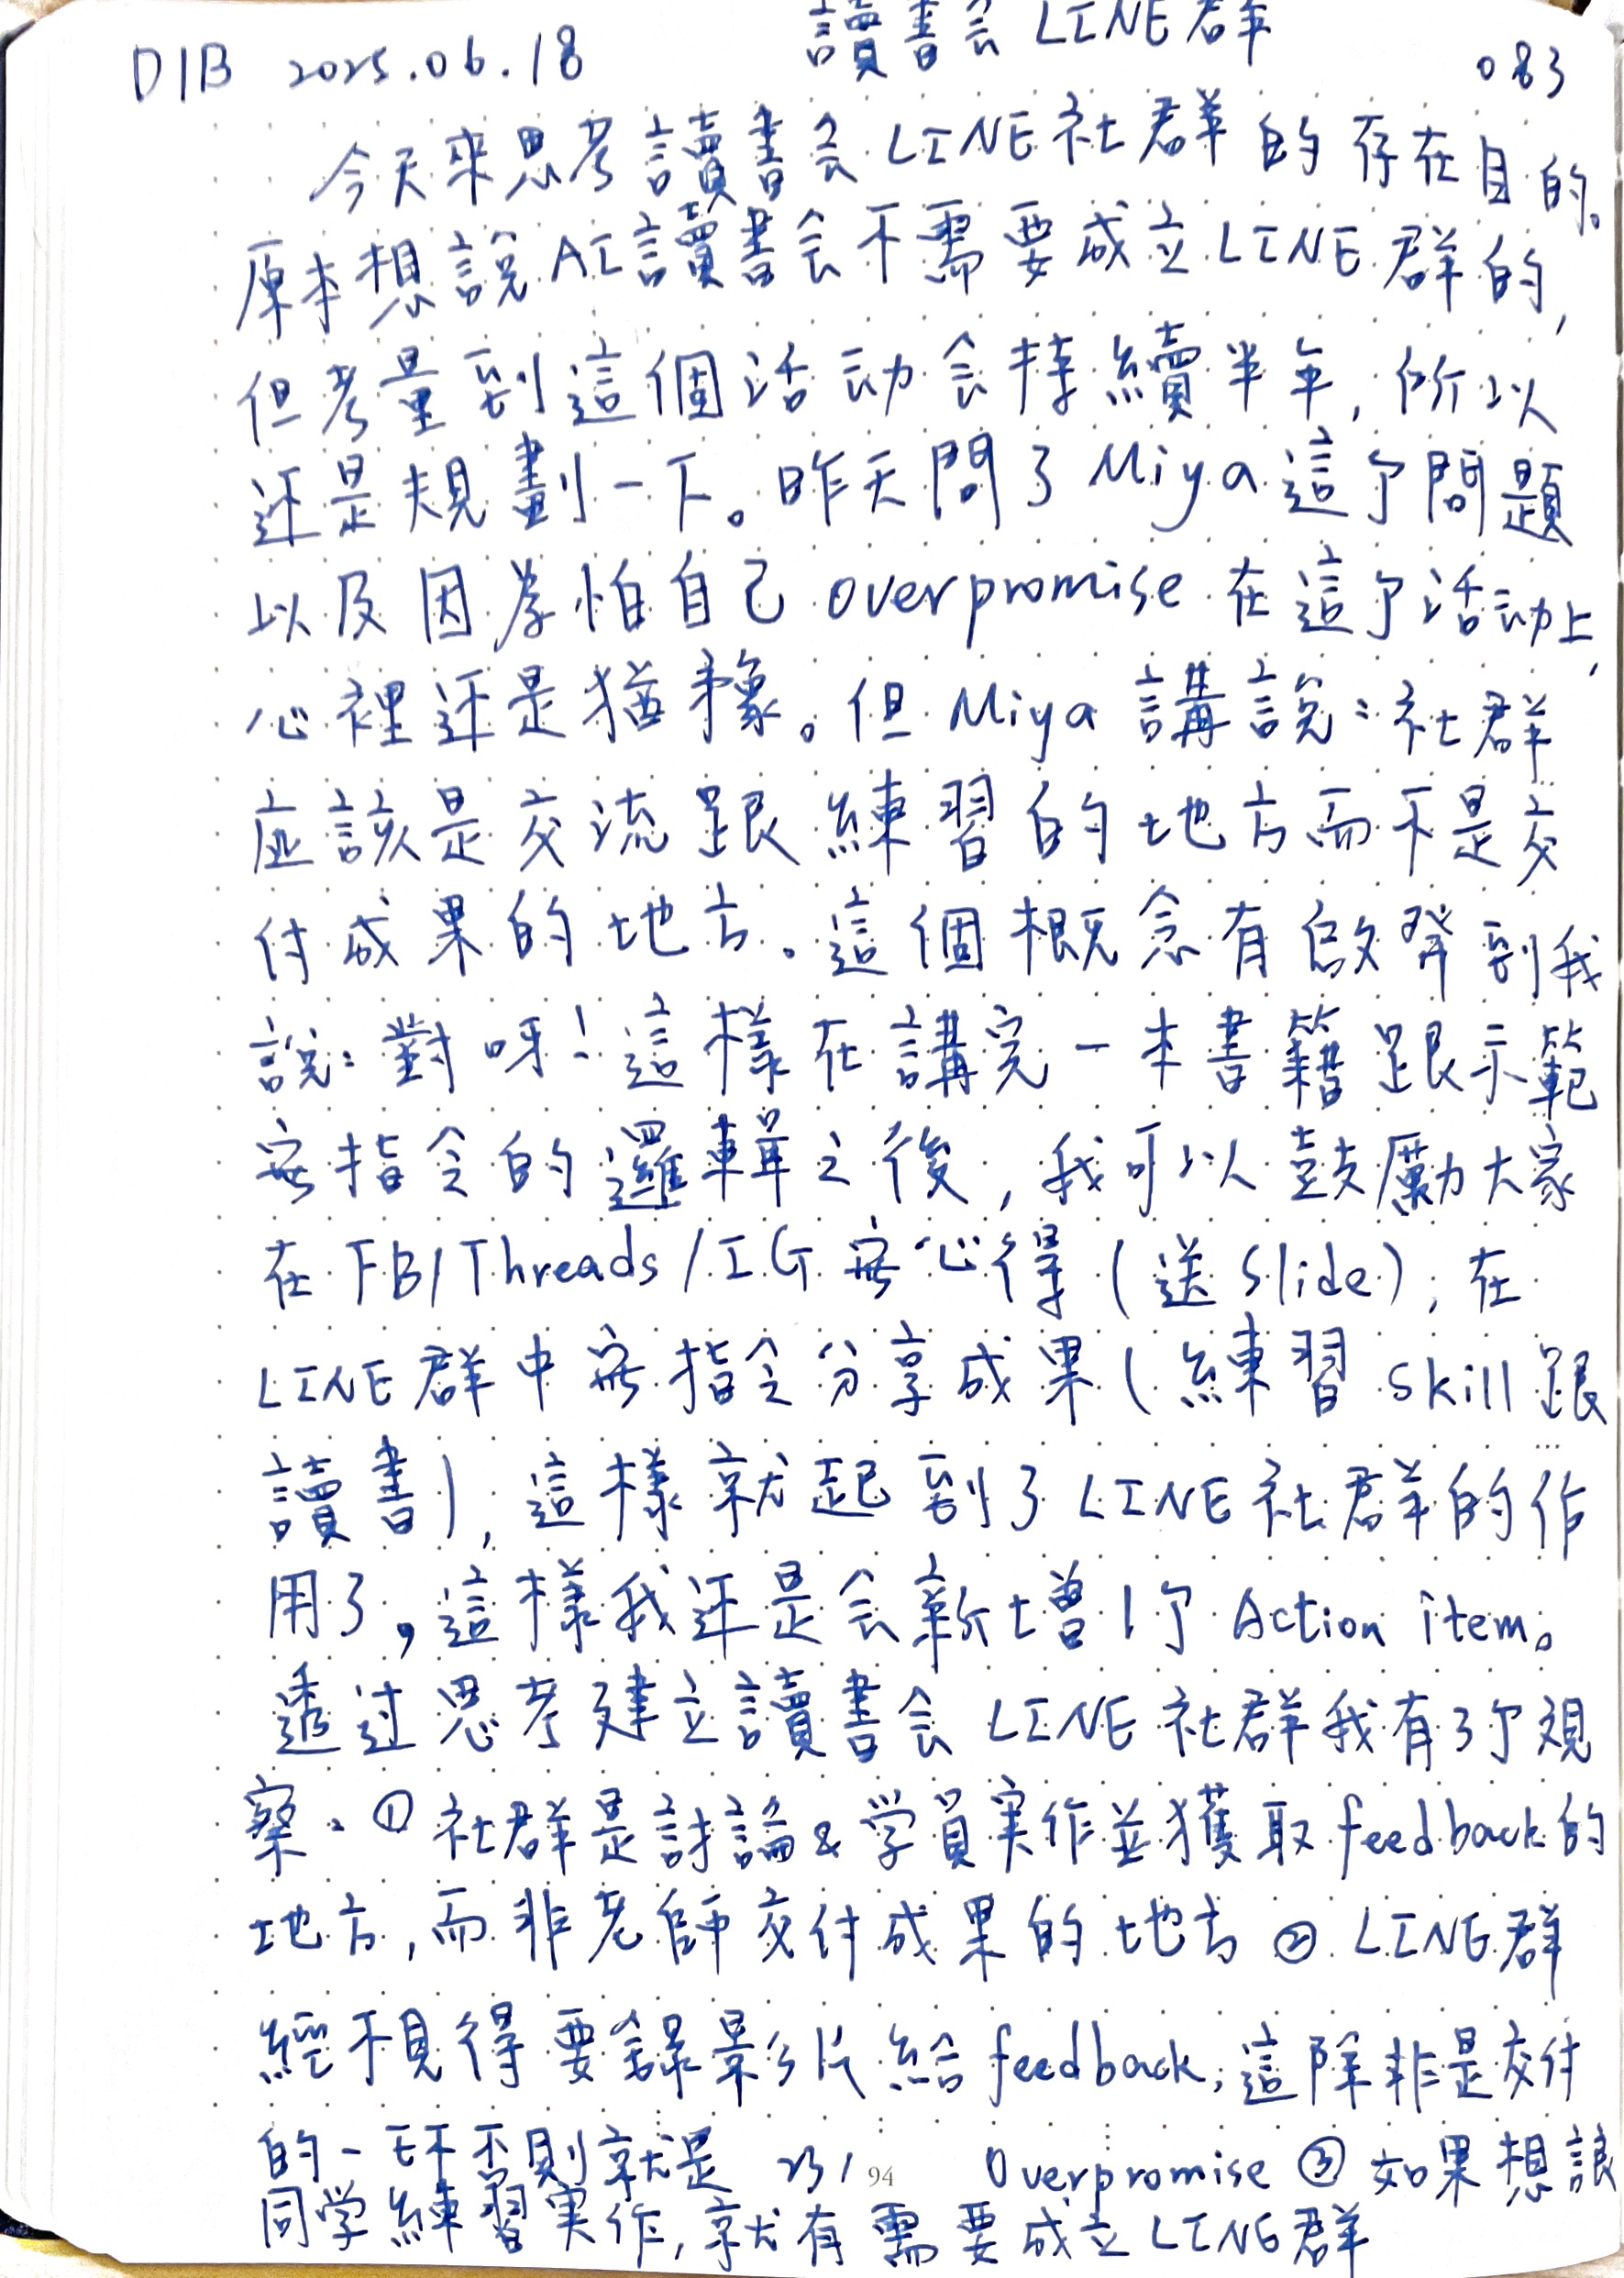 讀書会 LINE群
D1B 2025.06.18 083
今天來思考讀書会 LINE社群的存在目的。
原本想說 AI讀書会不需要成立 LINE群的,
但考量到這個活动会持續半年, 所以
还是規劃一下。昨天問了 Miya 這个問題
以及因為怕自己 overpromise 在這个活动上,
心裡还是猶豫。但 Miya 講說:社群
应該是交流跟練習的地方而不是交
付成果的地方。這個概念有啟發到我
說:對呀!這樣在講完一本書籍跟示範
寫指令的邏輯之後, 我可以鼓勵大家
在 FB/Threads/IG 寫心得(送 Slide), 在
LINE群中寫指令分享成果(練習 skill 跟
讀書), 這樣就起到了 LINE社群的作
用了,這樣我还是会新增1个 Action item。
透过思考建立讀書会 LINE社群我有3个観
察。①社群是討論&学員実作並獲取 feedback 的
地方,而非老師交付成果的地方 ② LINE群
經不見得要錄影片給 feedback, 這除非是交付
的一环否則就是 231 94 Overpromise ③如果想讓
同学練習実作, 就有需要成立 LINE群